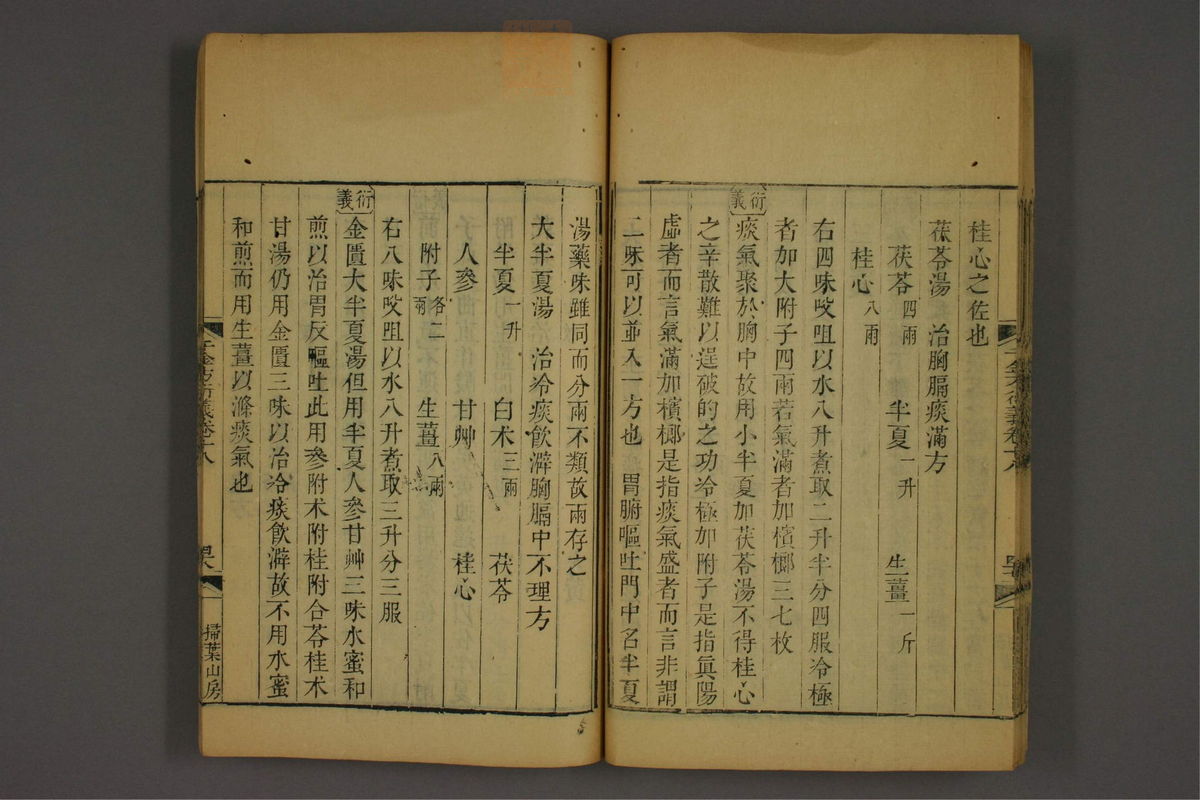 桂心之佐也
茯苓湯　治胸膈痰滿方
茯苓四兩　半夏一升　生薑一斤
桂心八兩
右四味㕮咀以水八升煮取二升半分四服冷極
者加大附子四兩若氣滿者加檳榔三七枚
衍義
痰氣聚於胸中故用小半夏加茯苓湯不得桂心
之辛散難以逞破的之功冷極加附子是指眞陽
虛者而言氣滿加檳榔是指痰氣盛者而言非謂
二味可以並入一方也　胃腑嘔吐門中名半夏
湯藥味雖同而分兩不類故兩存之
大半夏湯　治冷痰飲澼胸膈中不理方
半夏一升　白朮三兩　茯苓
人參　甘艸　桂心
附子各二兩　生薑八兩
右八味㕮咀以水八升煮取三升分三服
衍義
金匱大半夏湯但用半夏人參甘艸三味水蜜和
煎以治胃反嘔吐此用參附朮附桂附合苓桂朮
甘湯仍用金匱三味以治冷痰飲澼故不用水蜜
和煎而用生薑以滌痰氣也
千金方衍義卷十八
掃葉山房